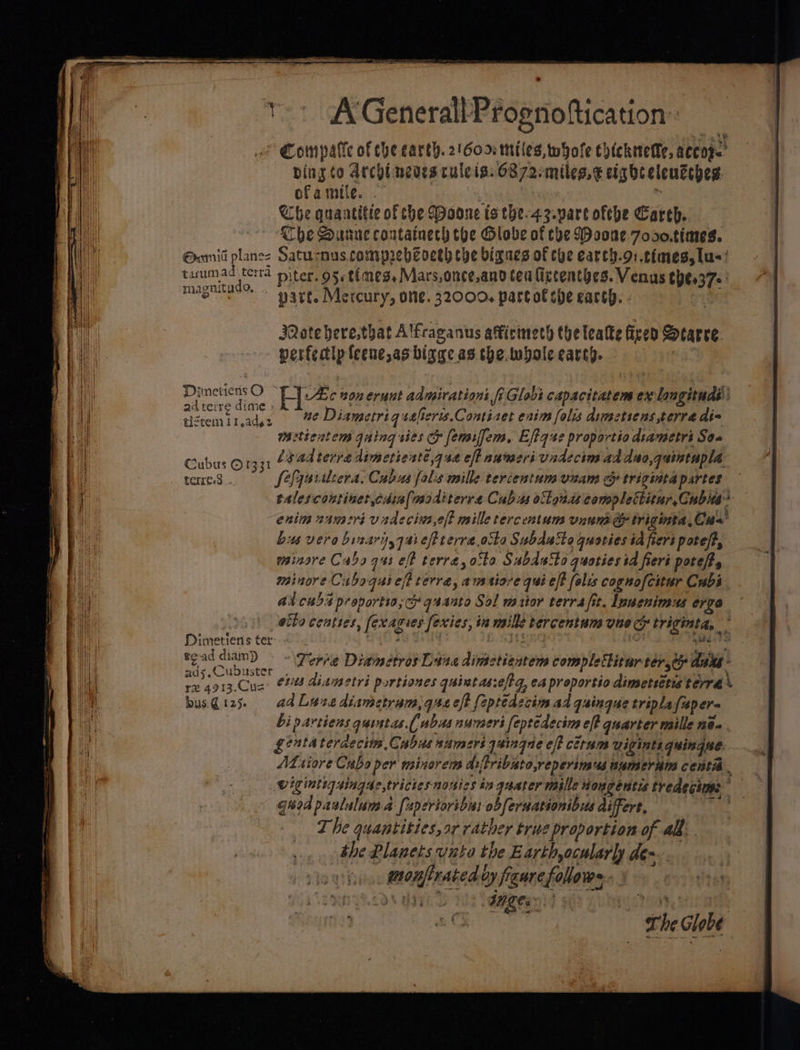 A Generall Prognostication
Compasse of the earth. 21600. miles, whose thicknesse, accor-
ding to Archimedes rule is. 6872. miles, & eight eleuēthes
of a mile.
The quantitie of the Moone is the. 43. part of the Earth.
The Sunne containeth the Globe of the Moone 7000. times.
Omniū plane- Saturnus comprehēdeth the bignes of the earth. 91. times, Iu-
tarum ad terrā piter. 95. times, Mars, once, and ten sixtenthes. Venus the. 37.
magnitudo. part. Mercury, one. 32000. part of the earth.
Note here, that Alfraganus affirmeth the leaste fixed Starre
perfectly seene, as bigge as the whole earth.
Dimetiens ☉ HÆc non erunt admirationi, si Globi capacitatem ex longitudi-
ad terre dime ne Diametri quæsieris. Continet enim solis dimetiens, terræ di-
tiētem 11, ad, 2 metientem quinquies & semissem, Estque proportio diametri So-
lis ad terræ dimetientē, quæ est numeri vndecim ad duo, quintupla
Cubus ☉ 1331
terre. 8. sesquialtera. Cubus solis mille tercentum vnam & triginta partes
tales continet, cuiusmodi terræ Cubus octonas complectitur, Cubus
enim numeri vndecim, est mille tercentum vnum & triginta, Cu-
bus vero binarij, qui est terræ, octo Subducto quoties id fieri potest,
minore Cubo qui est terræ, octo Subducto quoties id fieri potest,
minore Cubo qui est terræ, a maiore qui est solis cognoscitur Cubi
ad cubū proportio, & quanto Sol maior terra sit. Inuenimus ergo
octo centies, sexagies sexies, in mille tercentum vno & triginta,
Dimetiens ter
re ad diam ☽ Terræ Diametros Lunæ dimetientem complectitur ter, & duas
ad 5. Cubus ter
ræ 4913. Cu- eius diametri portiones quintas: estq, ea proportio dimetiētis terræ
bus ☾ 125. ad Lunæ diametrum, quæ est septēdecim ad quinque tripla super-
bi partiens quintas. Cubus numeri septēdecim est quarter mille nō-
gentaterdecim, Cubus numeri quinque est cētum viginti quinque.
Maiore Cubo per minorem distributo, reperimus numerum centū
vigintiquinque, tricies nonies in quater mille nongentis tredecims
quod paululum à superioribus obseruationibus differt.
The quantities, or rather true proportion of all
the Planets vnto the Earth, ocularly de-
monstrated by figure follow-
inge.
The Globe